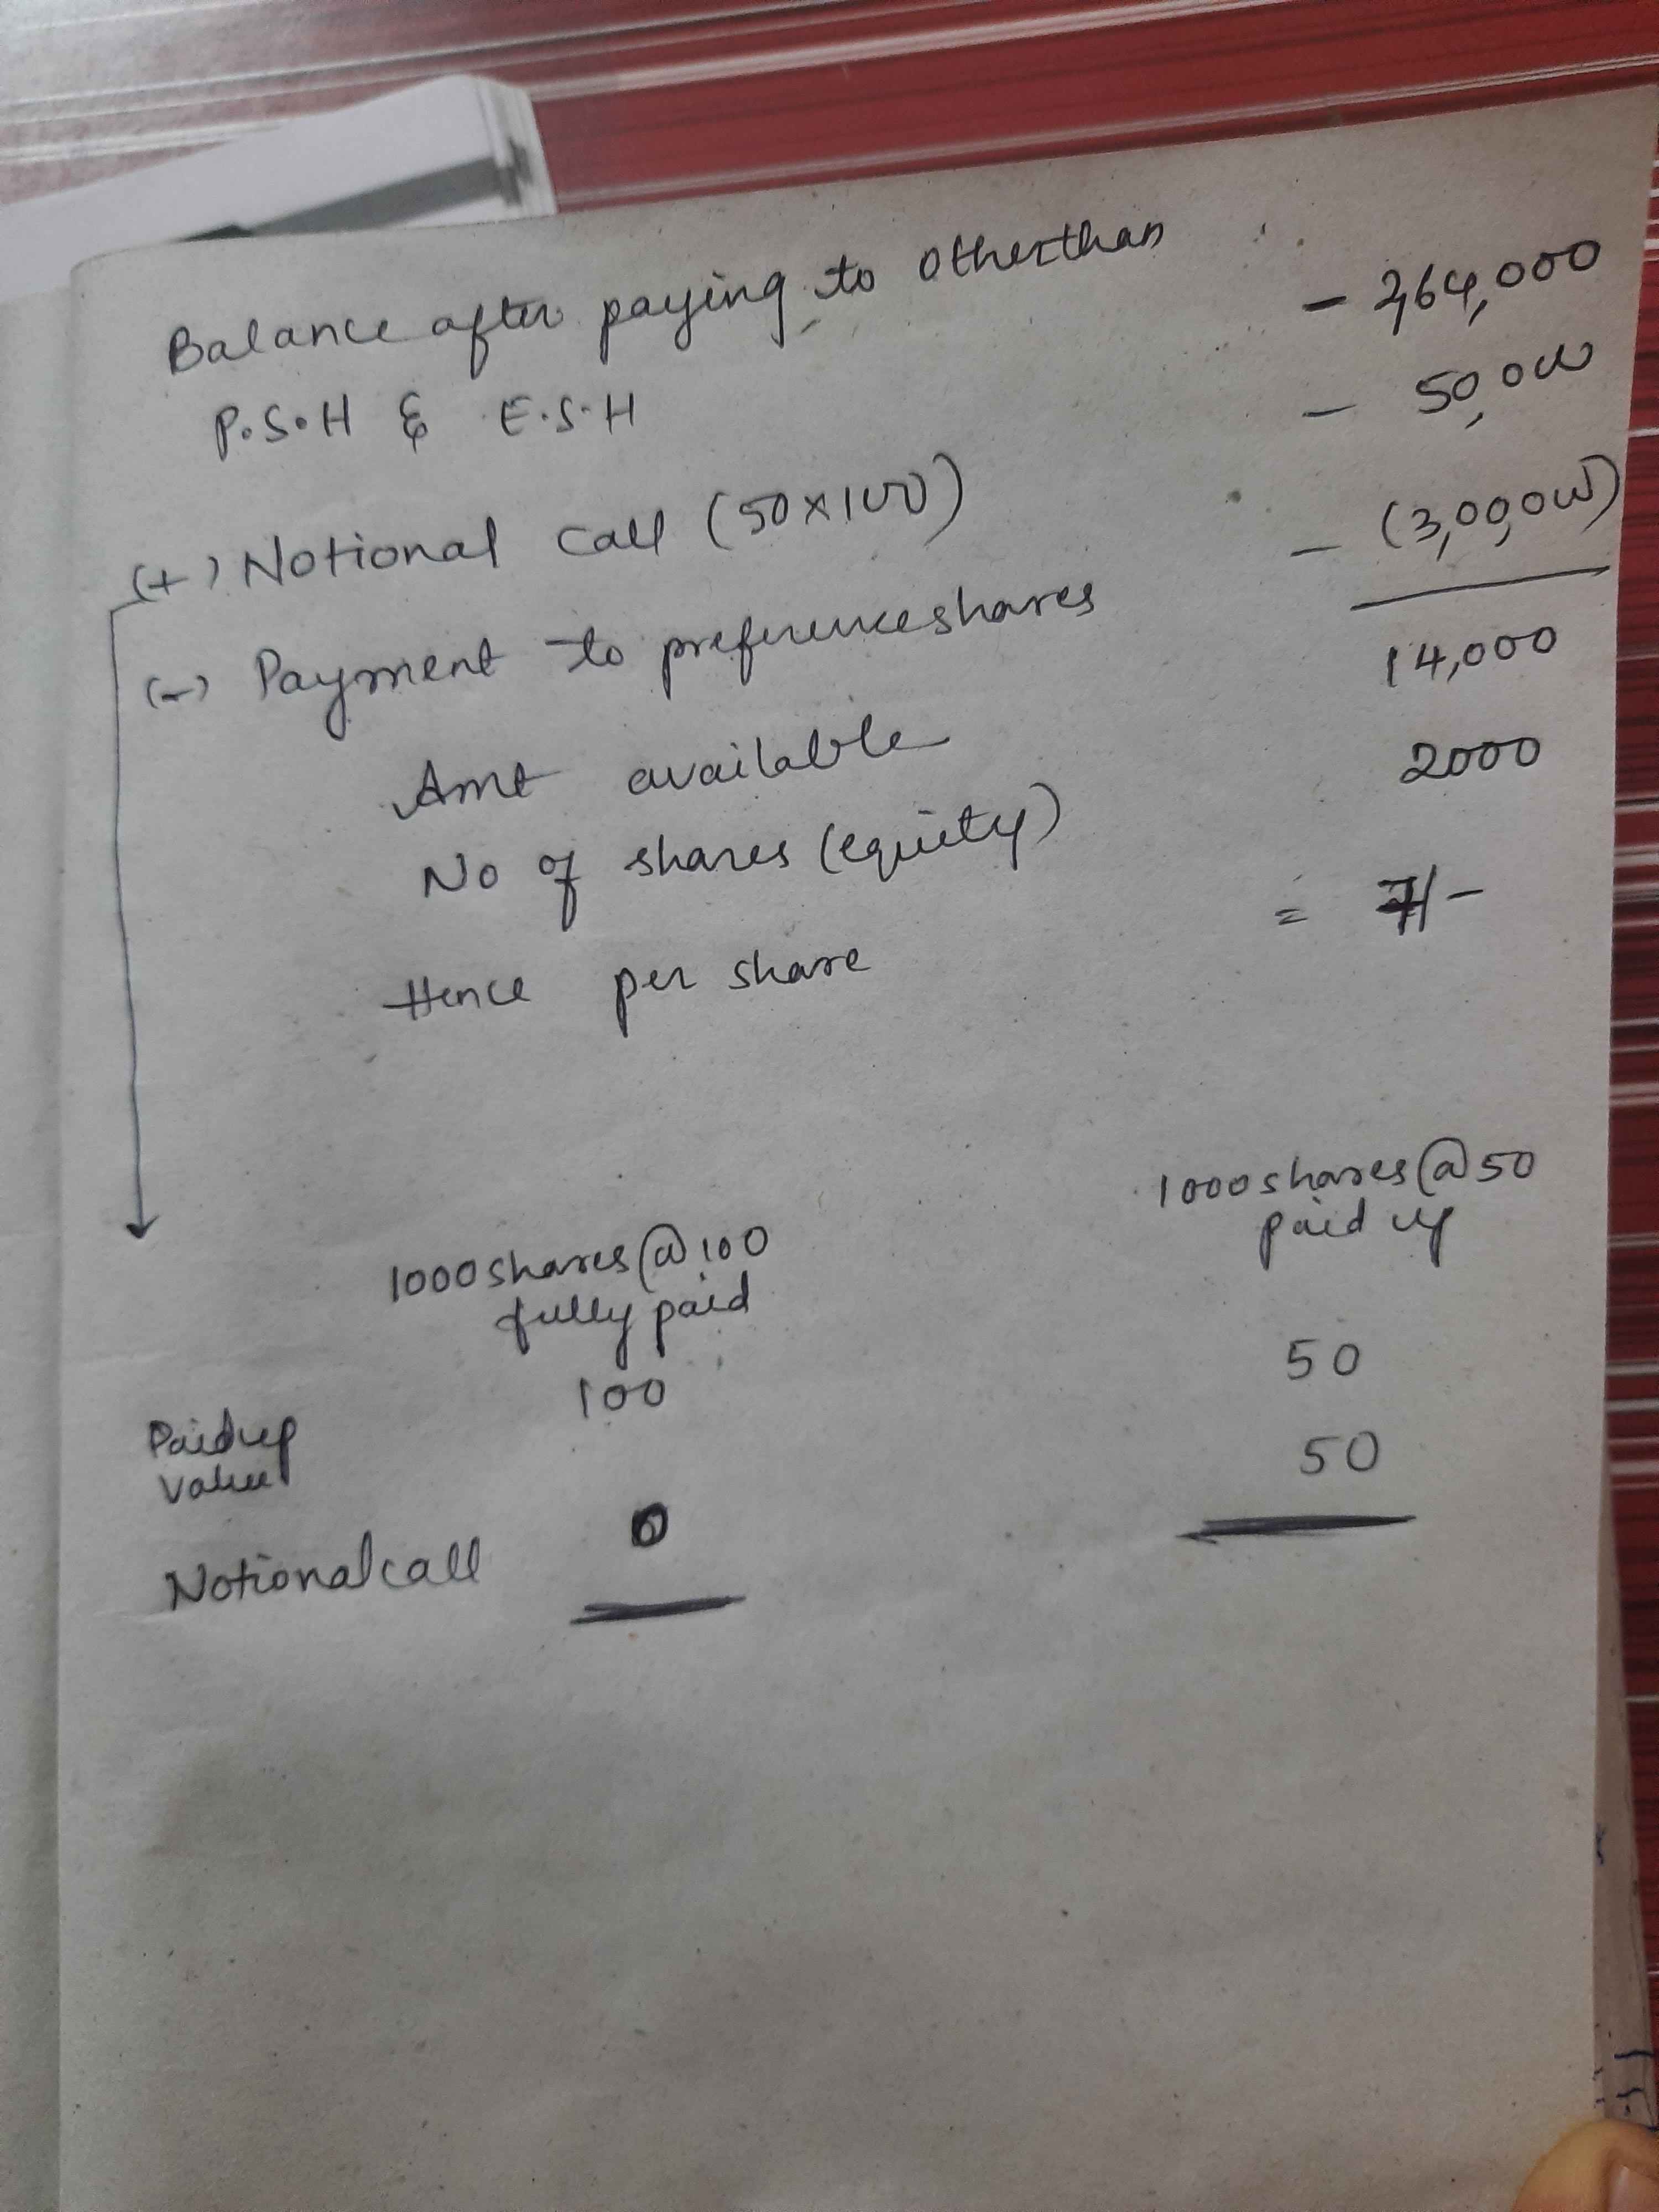 Balance after paying to otherthan
P.S.H & E.S.H - 2,64,000
(+) Notional call (50x100) - 50,000
(-) Payment to preference shares - (3,00,000)
Amt available 14,000
No of shares (equity) 2000
Hence per share = 7/-
1000 shares @ 100 1000 shares @ 50
fully paid paid up
Paid up 100 50
value
Notional call 0 50